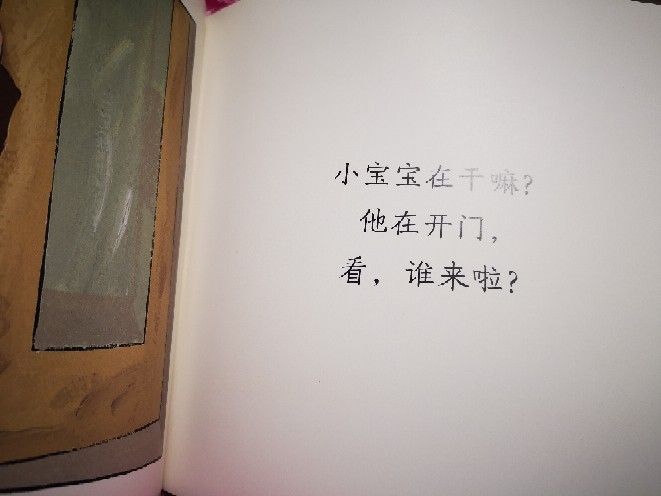 小宝宝在干嘛?
他在开门,
看，谁来啦?